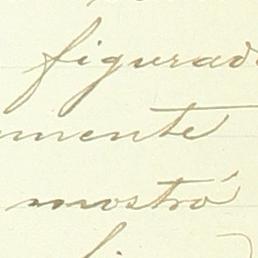 figurad
mente
mostró